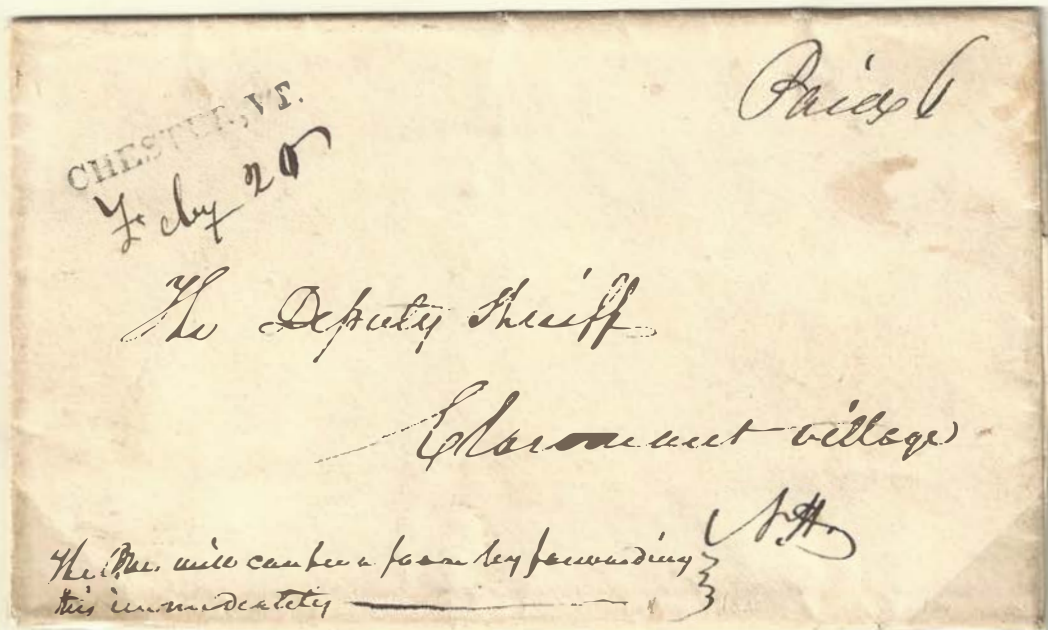 CHESTER, VT.
Feby 20
Paid 6
The Deputy Sheriff
Claremont village
N.H.
The P.M. will confer a favor by forwarding
this immediately